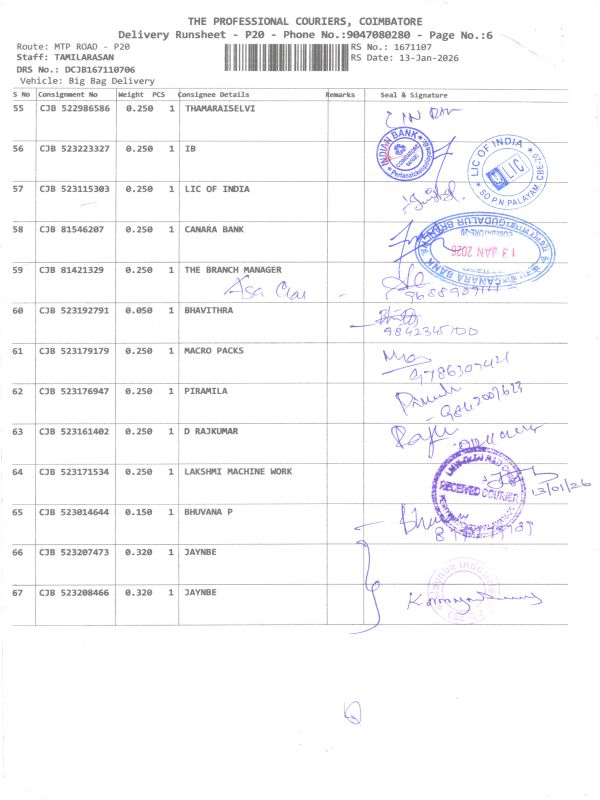 THE PROFESSIONAL COURIERS, COIMBATORE
Delivery Runsheet - P20 - Phone No.:9047080280 - Page No.:6
Route: MTP ROAD - P20 RS No.: 1671107
Staff: TAMILARASAN RS Date: 13-Jan-2026
DRS No.: DCJB167110706
Vehicle: Big Bag Delivery
S No Consignment No Weight PCS Consignee Details Remarks Seal & Signature
55 CJB 522986586 0.250 1 THAMARAISELVI
56 CJB 523223327 0.250 1 IB
INDIAN BANK
LIC OF INDIA
LIC
SO P.N PALAYAM CBE-20
57 CJB 523115303 0.250 1 LIC OF INDIA
58 CJB 81546207 0.250 1 CANARA BANK
13 JAN 2026
CANARA BANK
59 CJB 81421329 0.250 1 THE BRANCH MANAGER
60 CJB 523192791 0.050 1 BHAVITHRA
9842345100
61 CJB 523179179 0.250 1 MACRO PACKS
62 CJB 523176947 0.250 1 PIRAMILA
63 CJB 523161402 0.250 1 D RAJKUMAR
64 CJB 523171534 0.250 1 LAKSHMI MACHINE WORK
RECEIVED COURIER
13/01/26
65 CJB 523014644 0.150 1 BHUVANA P
66 CJB 523207473 0.320 1 JAYNBE
67 CJB 523208466 0.320 1 JAYNBE